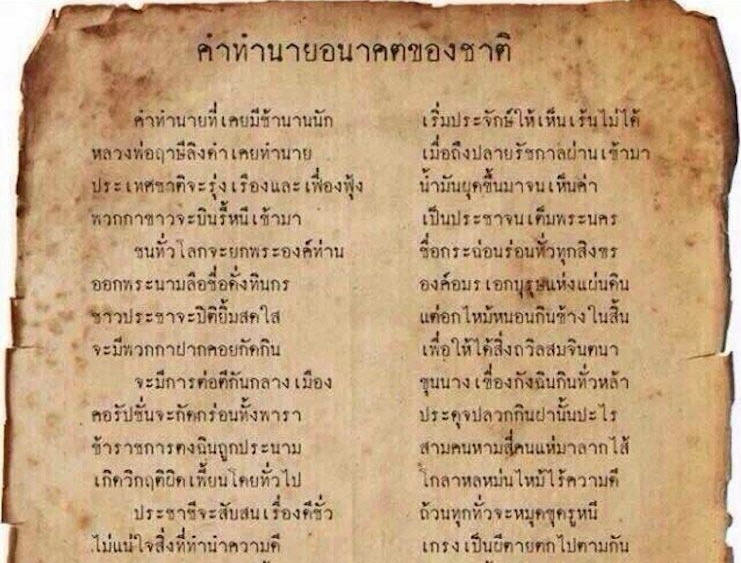 คำทำนายอนาคตของชาติ
คำทำนายที่เคยมีช้านานนัก เริ่มประจักษ์ให้เห็นเร้นไม่ได้
หลวงพ่อฤาษีลิงดำเคยทำนาย เมื่อถึงปลายรัชกาลผ่านเข้ามา
ประเทศชาติจะรุ่งเรืองและเฟื่องฟุ้ง น้ำมันผุดขึ้นมาจนเห็นค่า
พวกกาขาวจะบินรี้หนีเข้ามา เป็นประชาจนเต็มพระนคร
ชนทั่วโลกจะยกพระองค์ท่าน ชื่อกระฉ่อนร่อนทั่วทุกสิงขร
ออกพระนามลือชื่อดั่งทินกร องค์อมรเอกบุรุษแห่งแผ่นดิน
ชาวประชาจะปิติยิ้มสดใส แต่อกไหม้หนอนกินข้างในสิ้น
จะมีพวกกาฝากคอยกัดกิน เพื่อให้ได้สิ่งถวิลสมจินตนา
จะมีการต่อตีกันกลางเมือง ขุนนางเขื่องกังฉินกินทั่วหล้า
คอรัปชั่นจะกัดกร่อนทั้งพารา ประดุจปลวกกินฝานั้นปะไร
ข้าราชการตงฉินถูกประนาม สามคนหามสี่คนแห่มาลากไส้
เกิดวิกฤติผิดเพี้ยนโดยทั่วไป โกลาหลหม่นไหม้ไร้ความดี
ประชาชีจะสับสนเรื่องดีชั่ว ถ้วนทุกทั่วจะหมุดขุดรูหนี
ไม่แน่ใจสิ่งที่ทำนำความดี เกรงเป็นผีตายตกไปตามกัน